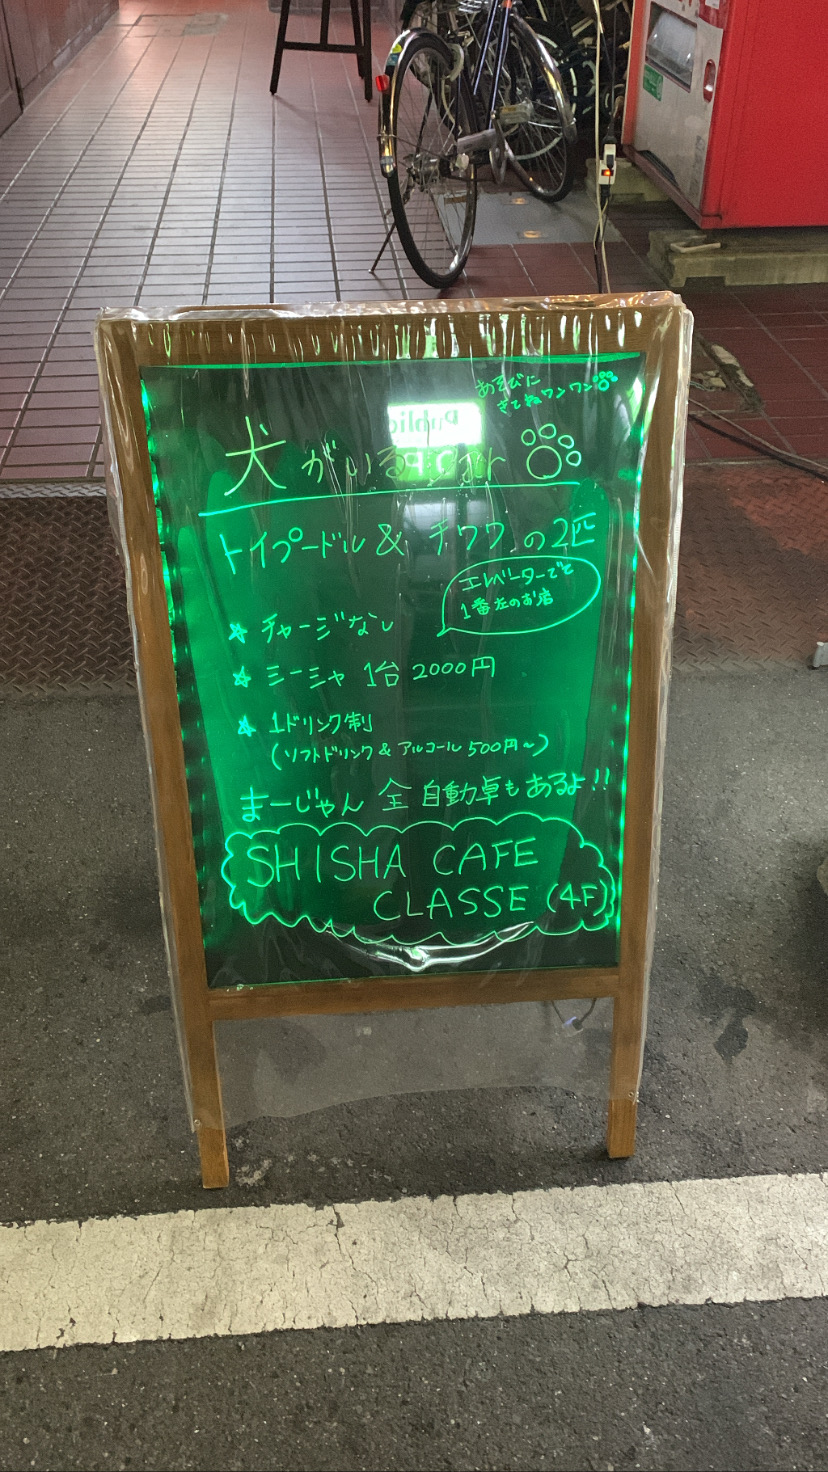 あそびに
きてねワンワン
犬がいる Bar
トイプードル & チワワ の2匹
エレベーターでて
1番左のお店
☆ チャージなし
☆ シーシャ 1台 2000円
☆ 1ドリンク制
(ソフトドリンク & アルコール 500円〜)
まーじゃん 全自動卓もあるよ!!
SHISHA CAFE
CLASSE (4F)